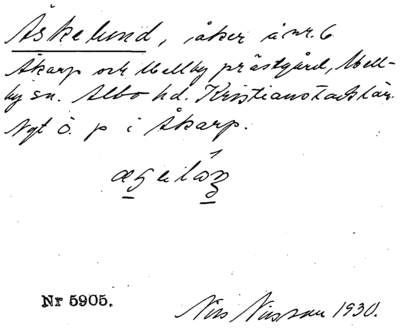 Åskelund, åker å nr. 6
Åkarp och Mellby prästgård, Mell-
by sn. Albo hd. Kristianstads län.
Ngt ö. p i Åkarp.
Nr 5905.
Nils Nilsson 1930.